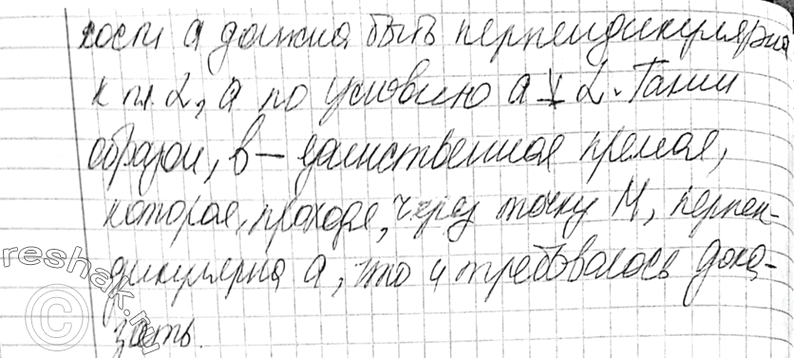 кости а должна быть перпендикулярна
к пл. α, а по условию а ⊥̸ α. Таким
образом, в — единственная прямая,
которая, проходя, через точку М, перпен-
дикулярна а, что и требовалось дока-
зать.
© reshak.ru